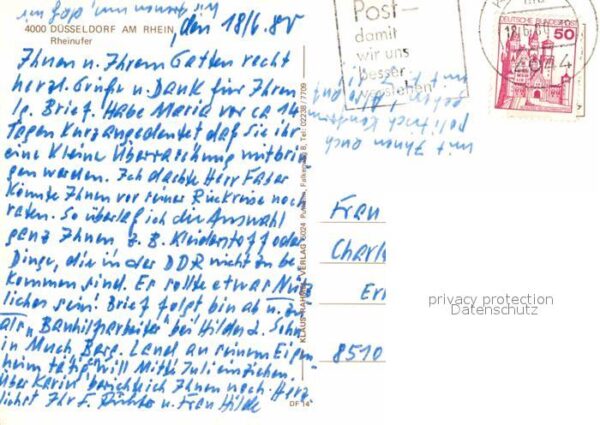 4000 DÜSSELDORF AM RHEIN, den 18/6.80
Rheinufer
Ihnen u. Ihrem Gatten recht
herzl. Grüße u. Dank für Ihren
lb. Brief. Habe Maria vor ca 14
Tagen kurz angedeutet daß Sie ihr
eine kleine Überraschung mitbrin
gen werden. Ich dachte Herr Faber
könnte Ihnen vor seiner Rückreise noch
raten. So überlaß ich die Auswahl
ganz Ihnen z.B. Kleiderstoff oder
Dinge, die in der DDR nicht zu be
kommen sind. Es sollte etwas Nütz
liches sein! Brief folgt bin ab u. zu
als "Bauhilfsarbeiter" bei Hildes 2. Sohn
in Much, Berg. Land an seinem Eigen
heim tätig will Mitte Juli einziehen.
Über Karin berichte ich Ihnen noch. Herz
lichst Ihr F. u. Frau Hilde
mit Ihnen auch
politisch
Post-
damit
wir uns
besser
verstehen
DEUTSCHE BUNDESPOST
50
18.6.80
Frau
Charl
Erl
8510
KLAUS VERLAG 5024 Pulheim, Falkenweg 8, Tel: 02238/7709
DF 14
privacy protection
Datenschutz